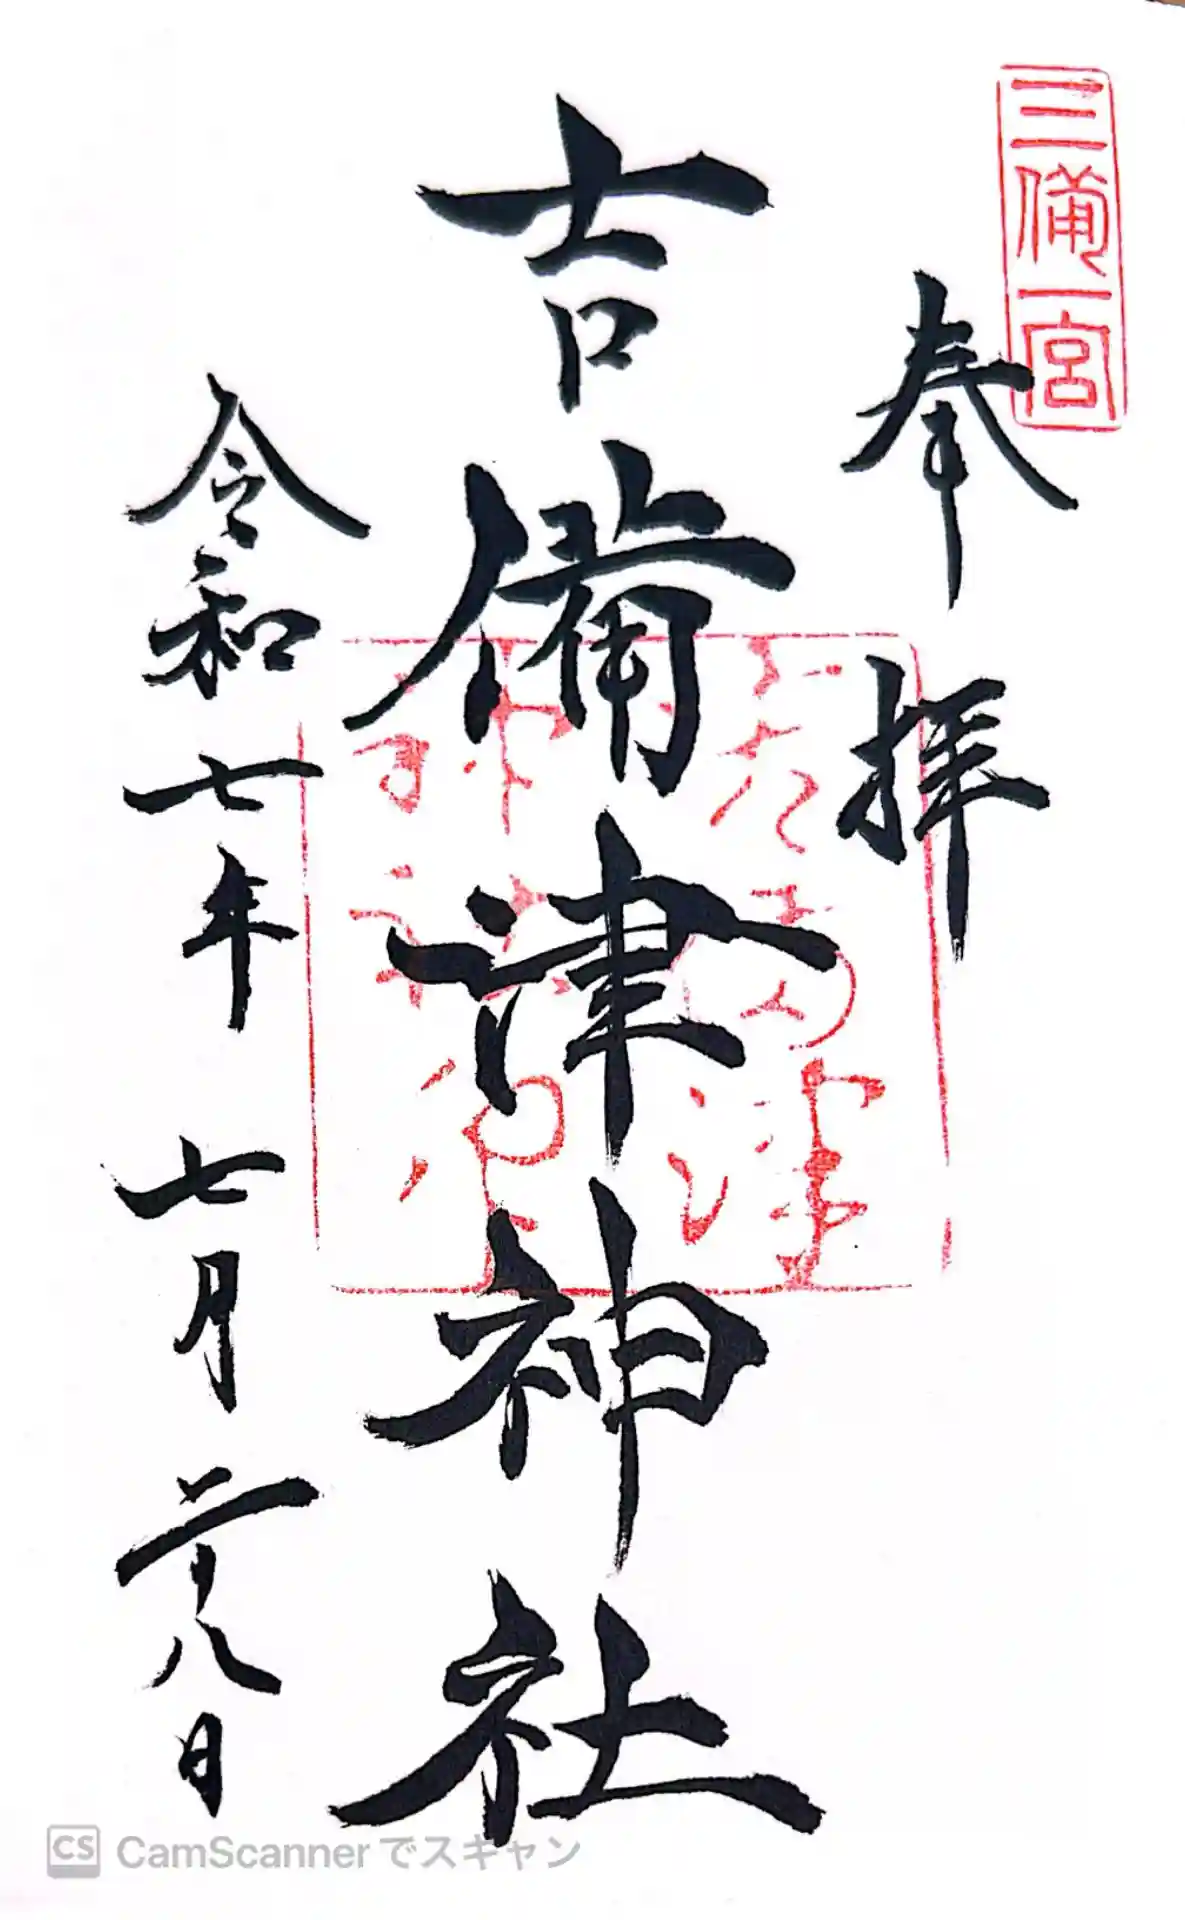 三備一宮
奉拝
吉備津神社
令和七年七月二十八日
CS CamScannerでスキャン